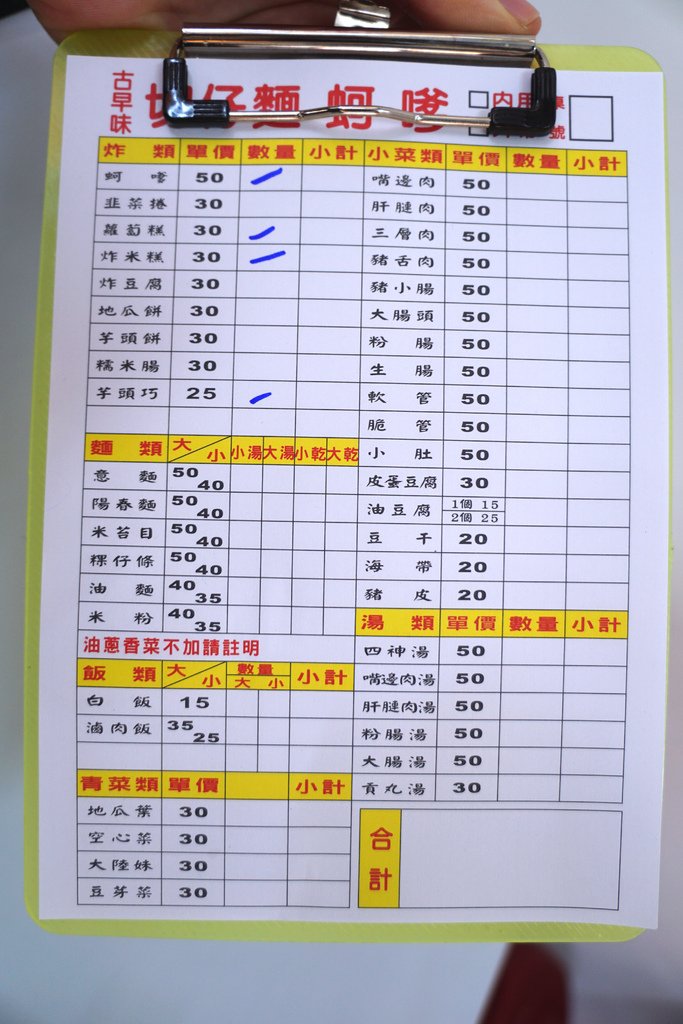 古早味
切仔麵 蚵嗲
内用 桌
號
炸類 單價 數量 小計
蚵嗲 50
韭菜捲 30
蘿蔔糕 30
炸米糕 30
炸豆腐 30
地瓜餅 30
芋頭餅 30
糯米腸 30
芋頭巧 25
麵類 大 小 小湯 大湯 小乾 大乾
意麵 50 40
陽春麵 50 40
米苔目 50 40
粿仔條 50 40
油麵 40 35
米粉 40 35
油蔥香菜不加請註明
飯類 大 小 數量 大 小 小計
白飯 15
滷肉飯 35 25
青菜類 單價 小計
地瓜葉 30
空心菜 30
大陸妹 30
豆芽菜 30
小菜類 單價 數量 小計
嘴邊肉 50
肝腱肉 50
三層肉 50
豬舌肉 50
豬小腸 50
大腸頭 50
粉腸 50
生腸 50
軟管 50
脆管 50
小肚 50
皮蛋豆腐 30
油豆腐 1個 15 2個 25
豆干 20
海帶 20
豬皮 20
湯類 單價 數量 小計
四神湯 50
嘴邊肉湯 50
肝腱肉湯 50
粉腸湯 50
大腸湯 50
貢丸湯 30
合計